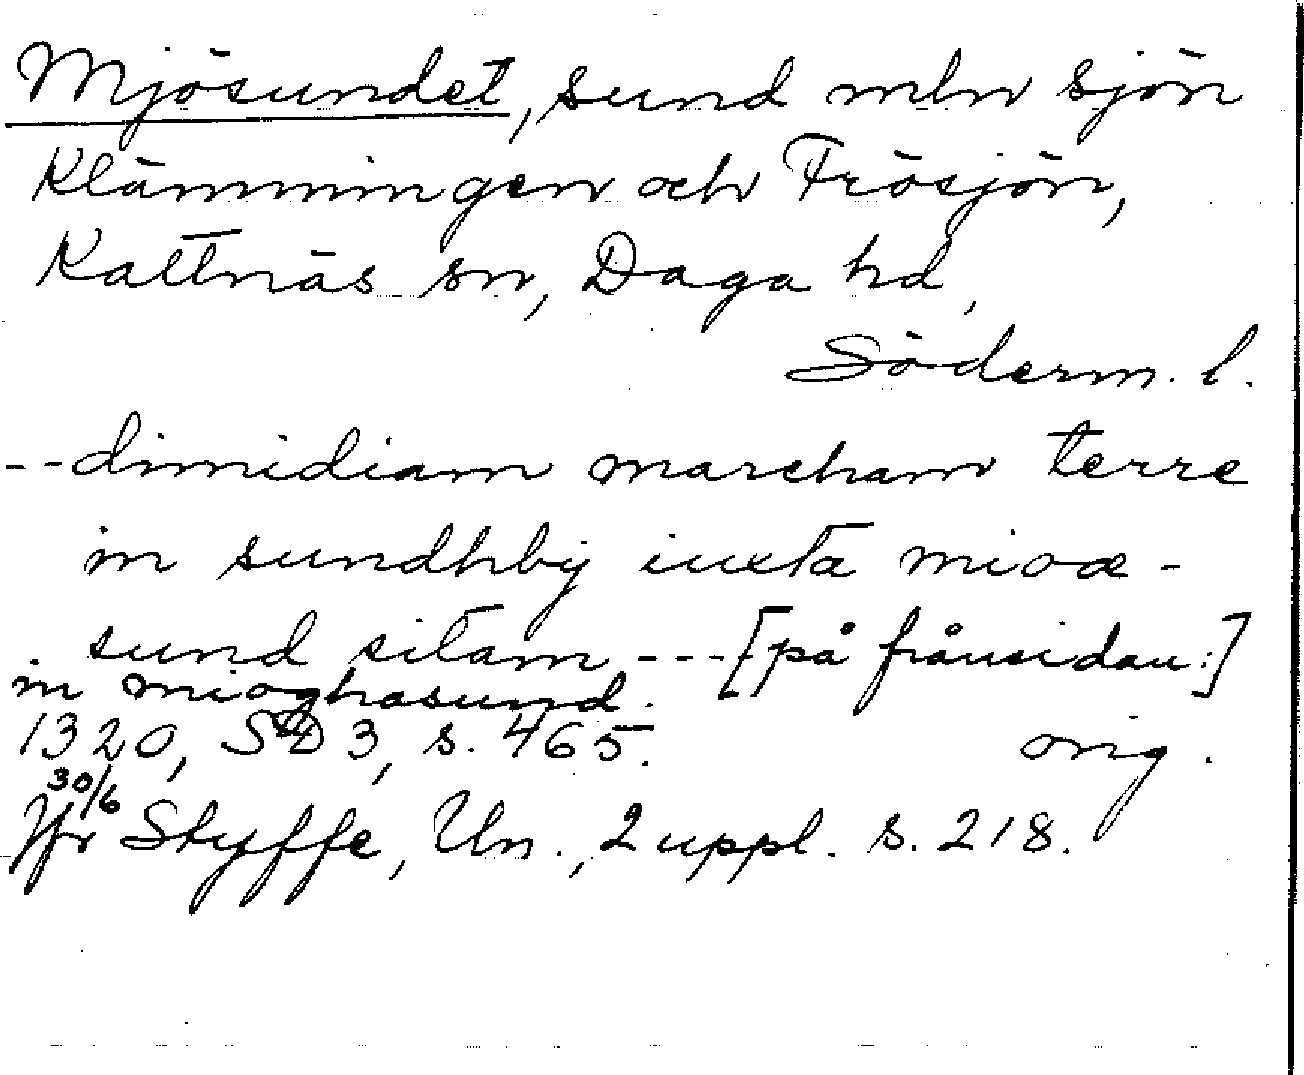 Mjösundet, sund mln sjön
Klämmingen och Frösjön,
Kattnäs sn, Daga hd,
Söderm. l.
-- dimidiam marcham terre
in sundhby iuxta mioæ-
sund sitam ---- [på frånsidan:]
in mioghasund.
1320, SD 3, s. 465. orig.
30/6
Jfr Styffe, Un., 2 uppl. s. 218.